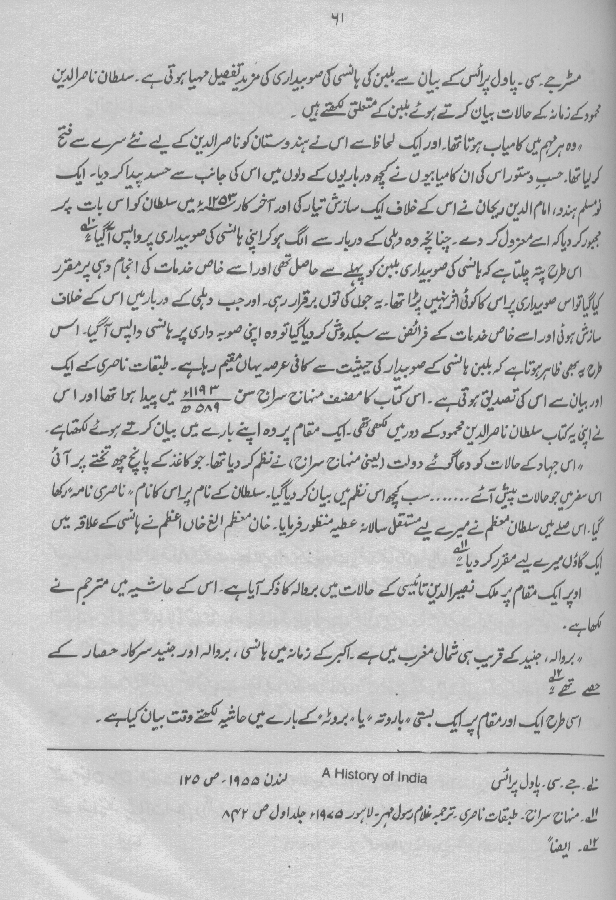 ۶۱
مسٹر جے۔ سی۔ پاول پرائس کے بیان سے بلبن کی ہانسی کی صوبیداری کی مزید تفصیل مہیا ہوتی ہے۔ سلطان ناصر الدین
محمود کے زمانہ کے حالات بیان کرتے ہوئے بلبن کے متعلق لکھتے ہیں۔
"وہ ہر مہم میں کامیاب ہوتا تھا۔ اور ایک لحاظ سے اس نے ہندوستان کو ناصر الدین کے لیے نئے سرے سے فتح
کر لیا تھا۔ حسب دستور اس کی ان کامیابیوں نے کچھ درباریوں کے دلوں میں اس کی جانب سے حسد پیدا کر دیا۔ ایک
نو مسلم ہندو، امام الدین ریحان نے اس کے خلاف ایک سازش تیار کی اور آخر کار ۱۲۵۳ء میں سلطان کو اس بات پر
مجبور کر دیا کہ اسے معزول کر دے۔ چنانچہ وہ دہلی کے دربار سے الگ ہو کر اپنی ہانسی کی صوبیداری پر واپس آ گیا"۱۰؎
اس طرح پتہ چلتا ہے کہ ہانسی کی صوبیداری بلبن کو پہلے سے حاصل تھی اور اسے خاص خدمات کی انجام دہی پر مقرر
کیا گیا تو اس صوبیداری پر اس کا کوئی اثر نہیں پڑا تھا۔ یہ جوں کی توں برقرار رہی۔ اور جب دہلی کے دربار میں اس کے خلاف
سازش ہوئی اور اسے خاص خدمات کے فرائض سے سبکدوش کر دیا گیا تو وہ اپنی صوبہ داری پر ہانسی واپس آ گیا۔ اس
طرح یہ بھی ظاہر ہوتا ہے کہ بلبن ہانسی کے صوبیدار کی حیثیت سے کافی عرصہ یہاں مقیم رہا ہے۔ طبقات ناصری کے ایک
اور بیان سے اس کی تصدیق ہوتی ہے۔ اس کتاب کا مصنف منہاج سراج سن ۱۱۹۳ء / ۵۸۹ھ میں پیدا ہوا تھا اور اس
نے اپنی یہ کتاب سلطان ناصر الدین محمود کے دور میں لکھی تھی۔ ایک مقام پر وہ اپنے بارے میں بیان کرتے ہوئے لکھتا ہے۔
"اس جہاد کے حالات کو دعا گوئے دولت (یعنی منہاج سراج) نے نظم کر دیا تھا۔ جو کاغذ کے پانچ چھ تختے پر آئی
اس سفر میں جو حالات پیش آئے ....... سب کچھ اس نظم میں بیان کر دیا گیا۔ سلطان کے نام پر اس کا نام "ناصری نامہ" رکھا
گیا۔ اس صلے میں سلطان معظم نے میرے لیے مستقل سالانہ عطیہ منظور فرمایا۔ خان معظم الغ خاں اعظم نے ہانسی کے علاقہ میں
ایک گاؤں میرے لیے مقرر کر دیا"۱۱؎
اوپر ایک مقام پر ملک نصیر الدین تائیسی کے حالات میں بروالہ کا ذکر آیا ہے۔ اس کے حاشیہ میں مترجم نے
لکھا ہے۔
"بروالہ، جنید کے قریب ہی شمال مغرب میں ہے۔ اکبر کے زمانہ میں ہانسی، بروالہ اور جنید سرکار حصار کے
حصے تھے"۱۲؎
اسی طرح ایک اور مقام پر ایک بستی "باروتہ" یا "بروٹہ" کے بارے میں حاشیہ لکھتے وقت بیان کیا ہے۔
۱۰؎۔ جے۔ سی۔ پاول پرائس A History of India لندن ۱۹۵۵۔ ص ۱۲۵
۱۱؎۔ منہاج سراج۔ طبقات ناصری۔ ترجمہ غلام رسول مہر۔ لاہور ۱۹۷۵ء جلد اول ص ۸۴۲
۱۲؎۔ ایضاً